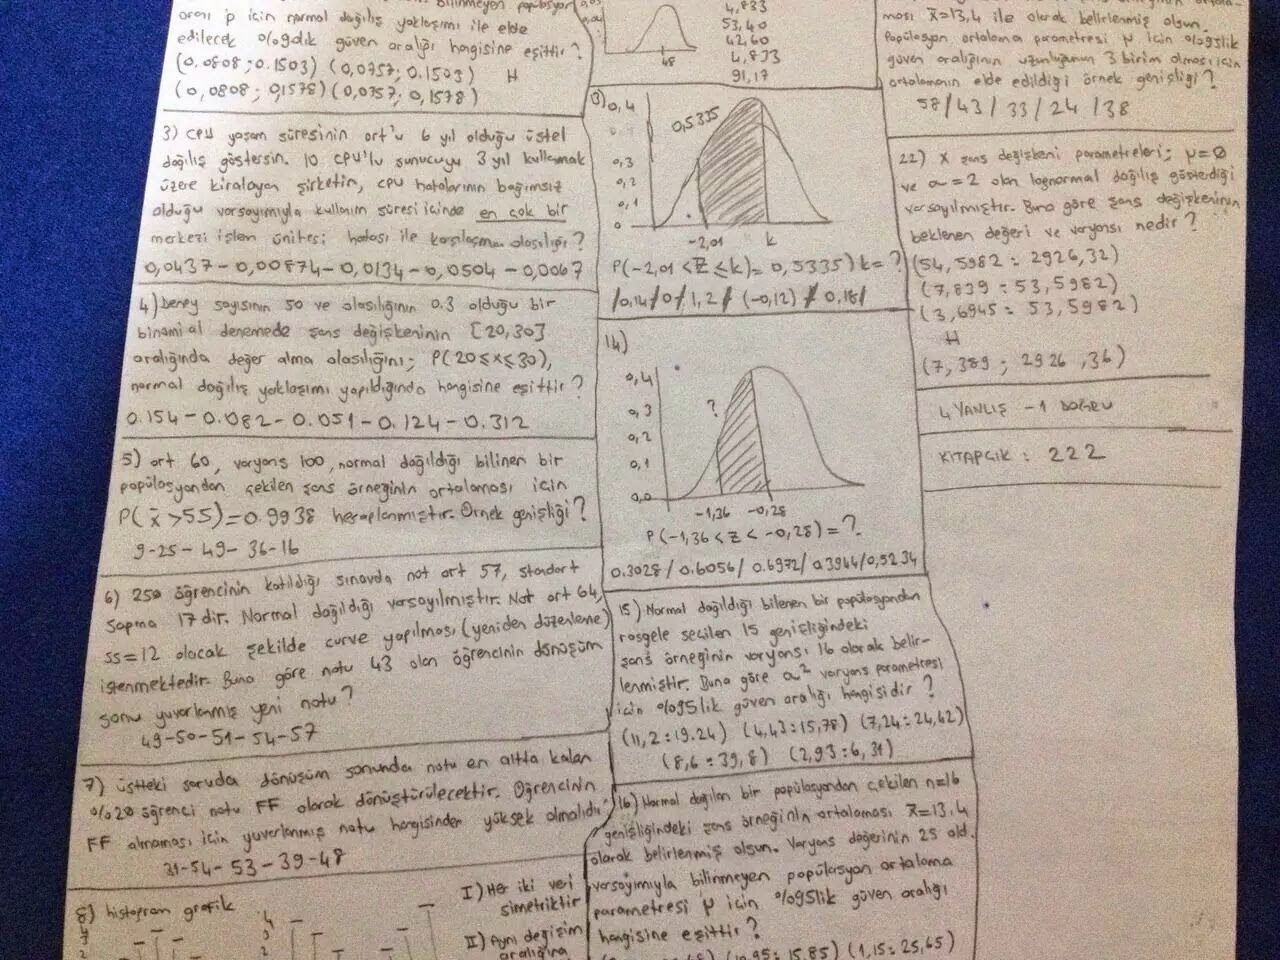 bilinmeyen popülasyon
oranı p için normal dağılış yaklaşımı ile elde
edilecek %90lık güven aralığı hangisine eşittir?
(0.0808; 0.1503) (0,0757; 0.1503) H
(0,0808; 0,1578) (0,0757; 0,1578)
3) CPU yaşam süresinin ort'u 6 yıl olduğu üstel
dağılış göstersin. 10 CPU'lu sunucuyu 3 yıl kullanmak
üzere kiralayan şirketin, cpu hatalarının bağımsız
olduğu varsayımıyla kullanım süresi içinde en çok bir
merkezi işlem ünitesi hatası ile karşılaşma olasılığı?
0,0437 - 0,00874 - 0,0134 - 0,0504 - 0,0067
4) Deney sayısının 50 ve olasılığının 0.3 olduğu bir
binomial denemede şans değişkeninin [20,30]
aralığında değer alma olasılığını; P(20≤x≤30),
normal dağılış yaklaşımı yapıldığında hangisine eşittir?
0.154 - 0.082 - 0.051 - 0.124 - 0.312
5) ort 60, varyans 100, normal dağıldığı bilinen bir
popülasyondan çekilen şans örneğinin ortalaması için
P(x̄>55)=0.9938 hesaplanmıştır. Örnek genişliği?
9-25-49-36-16
6) 250 öğrencinin katıldığı sınavda not ort 57, standart
sapma 17 dir. Normal dağıldığı varsayılmıştır. Not ort 64,
ss=12 olacak şekilde curve yapılması (yeniden düzenleme)
istenmektedir. Buna göre notu 43 olan öğrencinin dönüşüm
sonu yuvarlanmış yeni notu?
49-50-51-54-57
7) üstteki soruda dönüşüm sonunda notu en altta kalan
%20 öğrenci notu FF olarak dönüştürülecektir. Öğrencinin
FF almaması için yuvarlanmış notu hangisinden yüksek olmalıdır
31-54-53-39-48
8) histogram grafik
I) Her iki veri
simetriktir
II) Aynı değişim
aralığına
48
4,833
53,40
42,60
4,833
91,17
0,4
0,3
0,2
0,1
0
0,5335
-2,01 k
P(-2,01<Z≤k)=0,5335) k=?
/0,14/0/1,2/ (-0,12) / 0,18/
14)
0,4
0,3
0,2
0,1
0,0
?
-1,36 -0,28
P(-1,36<Z<-0,28)=?
0.3028/0.6056/0.6972/0.3944/0,5234
15) Normal dağıldığı bilenen bir popülasyondan
rasgele seçilen 15 genişliğindeki
şans örneğinin varyansı 16 olarak belir-
lenmiştir. Buna göre σ² varyans parametresi
için %95lik güven aralığı hangisidir?
(11,2:19.24) (4,43:15,78) (7,24:24,42)
(8,6:39,8) (2,93:6,31)
16) Normal dağılan bir popülasyondan çekilen n=16
genişliğindeki şans örneğinin ortalaması x̄=13,4
olarak belirlenmiş olsun. Varyans değerinin 25 old.
varsayımıyla bilinmeyen popülasyon ortalama
parametresi μ için %95lik güven aralığı
hangisine eşittir?
15,85) (1,15:25,65)
ması x̄=13,4 ile olarak belirlenmiş olsun.
Popülasyon ortalama parametresi μ için %95lik
güven aralığının uzunluğunun 3 birim olması için
ortalamanın elde edildiği örnek genişliği?
58/43/33/24/38
22) X şans değişkeni parametreleri; μ=0
ve σ=2 olan lognormal dağılış gösterdiği
varsayılmıştır. Buna göre şans değişkeninin
beklenen değeri ve varyansı nedir?
(54,5982:2926,32)
(7,839:53,5982)
(3,6945:53,5982)
H
(7,389;2926,36)
4 YANLIŞ -1 DOĞRU
KİTAPÇIK: 222